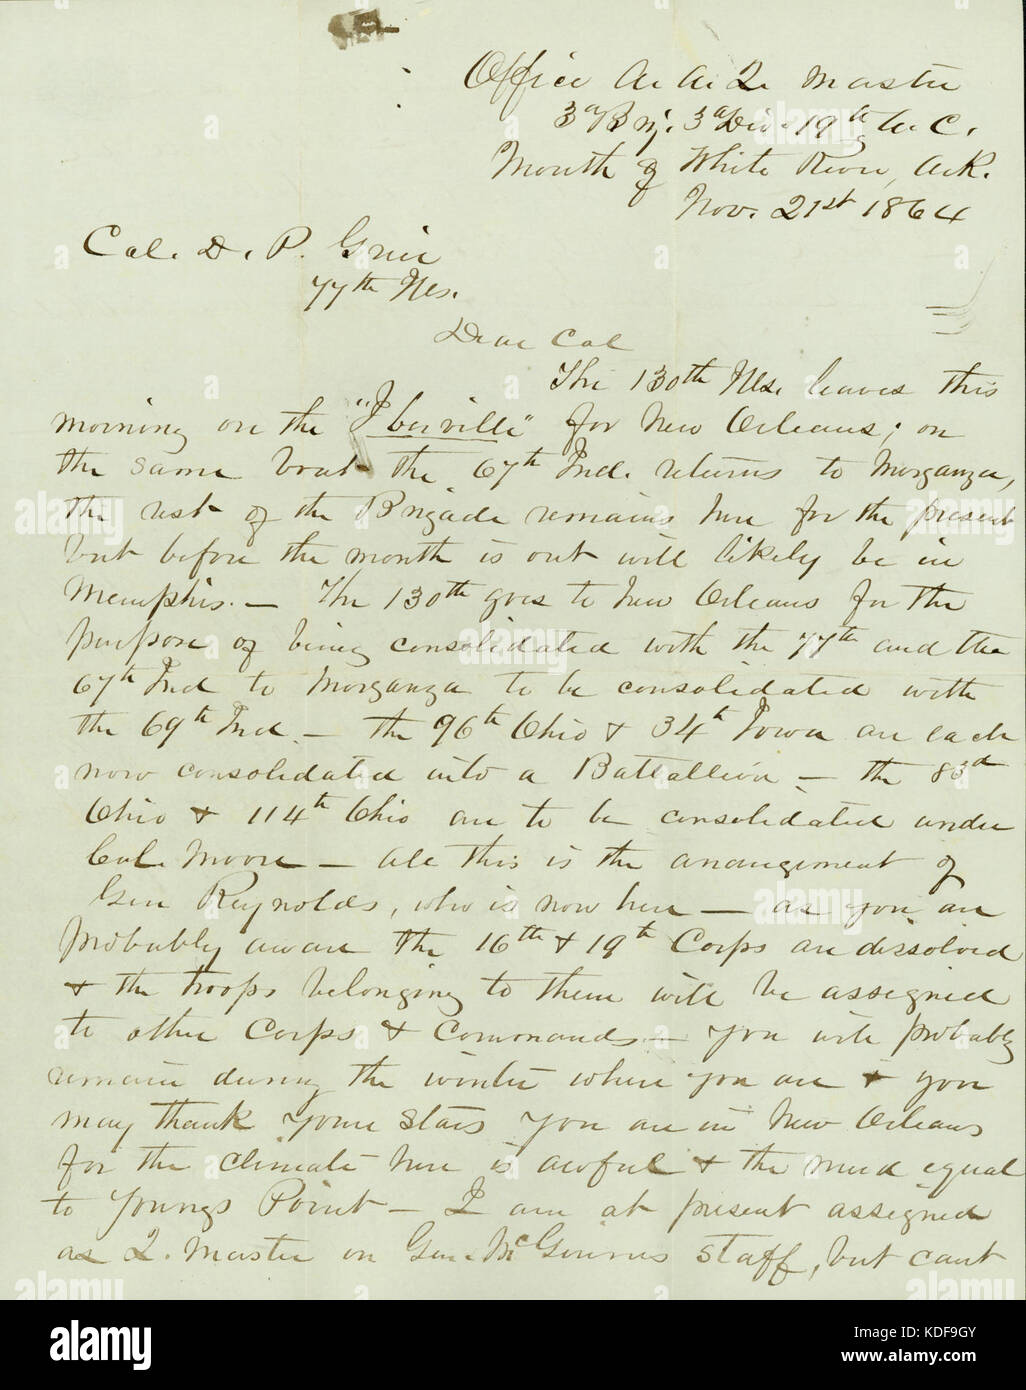 Office A. A. Q. Master
3d Brig. 3d Div. 19th A. C.
Mouth of White River, Ark.
Nov. 21st 1864
Col. D. P. Grier
77th Ills.
Dear Col
The 130th Ills. leaves this
morning on the "Iberville" for New Orleans; on
the same boat the 67th Ind. returns to Morganza,
the rest of the Brigade remains here for the present
but before the month is out will likely be in
Memphis. — The 130th goes to New Orleans for the
purpose of being consolidated with the 77th and the
67th Ind to Morganza to be consolidated with
the 69th Ind. — the 96th Ohio & 34th Iowa are each
now consolidated into a Battallion — the 83d
Ohio & 114th Ohio are to be consolidated under
Col. Moore — all this is the arrangement of
Gen Reynolds, who is now here — as you are
probably aware the 16th & 19th Corps are dissolved
& the troops belonging to them will be assigned
to other Corps & Commands — You will probably
remain during the winter where you are & you
may thank your stars you are in New Orleans
for the climate here is awful & the mud equal
to Youngs Point — I am at present assigned
as Q. Master on Gen. McGinnis staff, but cant
alamy
a
alamy
Image ID: KDF9GY
www.alamy.com